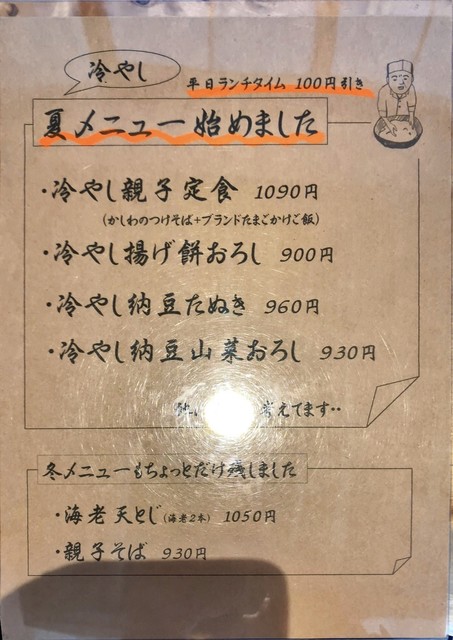 冷やし
平日ランチタイム 100円引き
夏メニュー始めました
・冷やし親子定食 1090円
(かしわのつけそば+ブランドたまごかけご飯)
・冷やし揚げ餅おろし 900円
・冷やし納豆たぬき 960円
・冷やし納豆山菜おろし 930円
考えてます‥
冬メニューもちょっとだけ残しました
・海老天とじ(海老2本) 1050円
・親子そば 930円